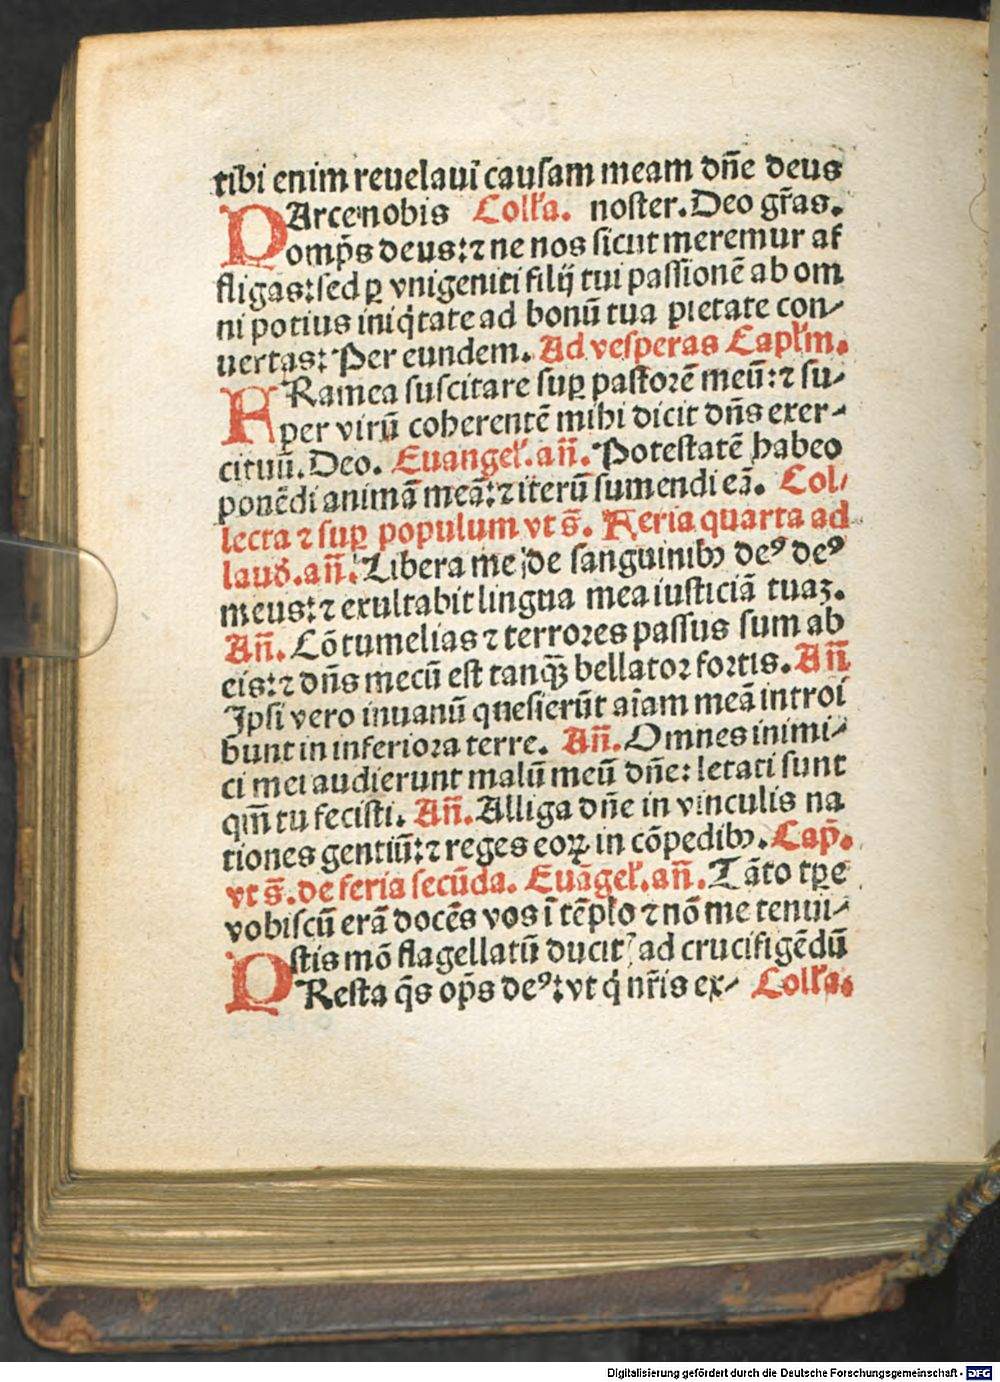 tibi enim reuelaui causam meam dn̄e deus
PArce nobis Coll'a. noster. Deo gr̄as.
omp̄s deus: ⁊ ne nos sicut meremur af
fligas: sed ꝑ vnigeniti filij tui passionē ab om
ni potius iniq̇tate ad bonū tua pietate con-
uertas: Per eundem. Ad vesperas Capl'm.
FRamea suscitare suꝑ pastorē meū: ⁊ su-
per virū coherentē mihi dicit dn̄s exer-
cituū. Deo. Euangel'. an̄. Potestatē habeo
ponēdi animā meā: ⁊ iterū sumendi eā. Col-
lecta ⁊ suꝑ populum vt s̄. Feria quarta ad
laud̄. an̄. Libera me de sanguinibꝫ deꝰ deꝰ
meus: ⁊ exultabit lingua mea iusticiā tuaꝫ.
An̄. Cōtumelias ⁊ terrores passus sum ab
eis: ⁊ dn̄s mecū est tanqꝫ bellator fortis. An̄
Ipsi vero inuanū quesierūt aīam meā introi
bunt in inferiora terre. An̄. Omnes inimi-
ci mei audierunt malū meū dn̄e: letati sunt
qm̄ tu fecisti. An̄. Alliga dn̄e in vinculis na
tiones gentiū: ⁊ reges eoꝝ in cōpedibꝫ. Cap̄.
vt s̄. de feria secūda. Euāgel'. an̄. Tāto tꝑe
vobiscū erā docēs vos ī tēplo ⁊ nō me tenui-
stis mō flagellatū ducitꝭ ad crucifigēdū
PResta q̄s op̄s deꝰ: vt q̇ nr̄is ex- Coll'a.
Digitalisierung gefördert durch die Deutsche Forschungsgemeinschaft - DFG